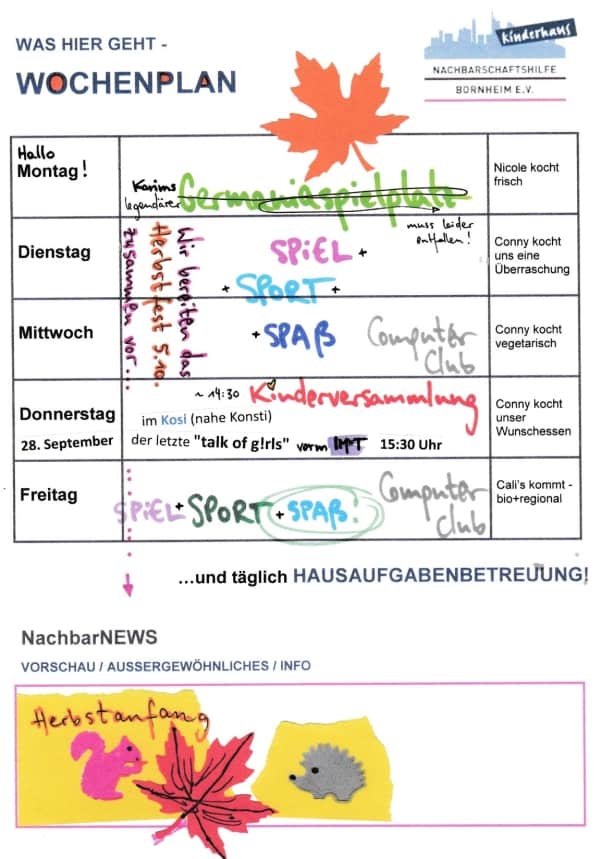 WAS HIER GEHT -
WOCHENPLAN
kinderhaus
NACHBARSCHAFTSHILFE
BORNHEIM E.V.
Hallo
Montag!
Karims
legendärer
Germaniaspielplatz
muss leider
entfallen!
Nicole kocht
frisch
Dienstag
Wir bereiten das
Herbstfest 5.10.
zusammen vor...
SPiEL +
+ SPORT +
Conny kocht
uns eine
Überraschung
Mittwoch
+ SPAß
Computer
Club
Conny kocht
vegetarisch
Donnerstag
28. September
~ 14:30 Kinderversammlung
im Kosi (nahe Konsti)
der letzte "talk of g!rls" vorm IMT 15:30 Uhr
Conny kocht
unser
Wunschessen
Freitag
SPiEL + SPORT + SPAß!
Computer
Club
Cali's kommt -
bio+regional
...und täglich HAUSAUFGABENBETREUUNG!
NachbarNEWS
VORSCHAU / AUSSERGEWÖHNLICHES / INFO
Herbstanfang